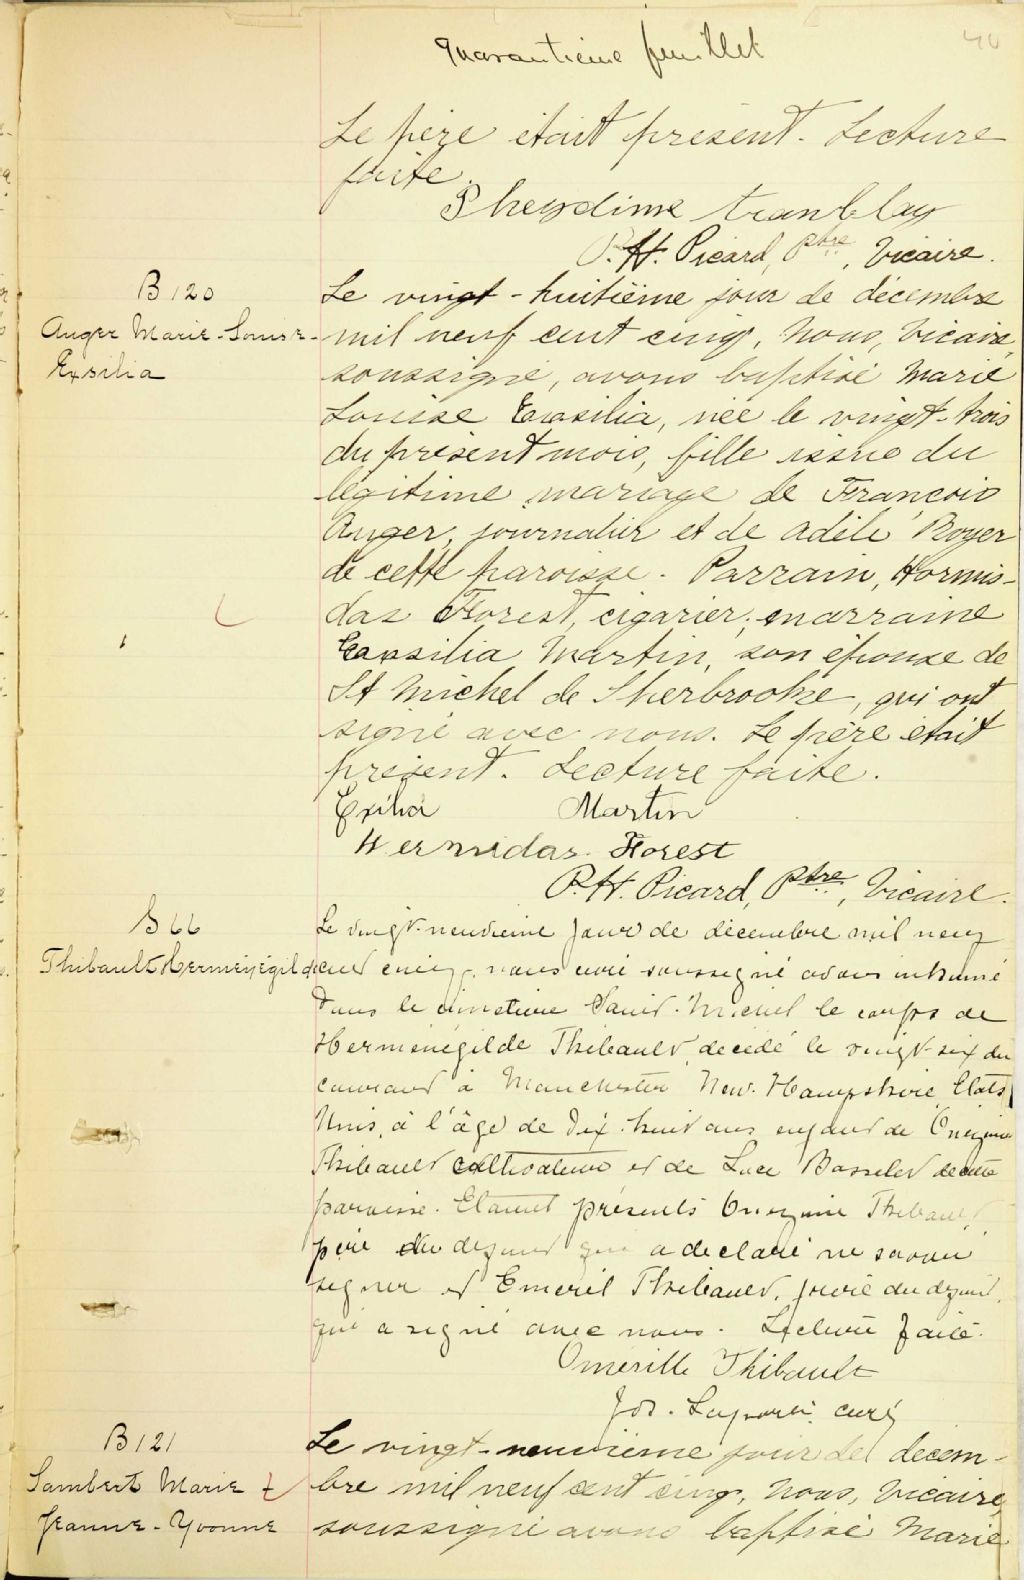 40
Quarantième feuillet
Le père était présent. Lecture
faite.
Pheydime tranblay
P.H. Picard, Ptre, Vicaire.
B 120
Auger Marie-Louise-
Exsilia
Le vingt-huitième jour de décembre
mil neuf cent cinq, Nous, Vicaire,
soussigné, avons baptisé Marie
Louise Exsilia, née le vingt-trois
du présent mois, fille issue du
légitime mariage de François
Auger, journalier et de Adèle Royer
de cette paroisse. Parrain, Hormis-
das Forest, cigarier; marraine
Exsilia Martin, son épouse de
St Michel de Sherbrooke, qui ont
signé avec nous. Le père était
présent. Lecture faite.
Exilia Martin
Hermidas Forest
P.H. Picard, Ptre, Vicaire.
S 66
Thibault Herménégilde
Le vingt-neuvième jour de décembre mil neuf
cent cinq, nous curé soussigné avons inhumé
dans le cimetière Saint-Michel le corps de
Herménégilde Thibault, décédé le vingt-six du
courant à Manchester New-Hampshire Etats
Unis, à l'âge de dix-huit ans, enfant de Onezime
Thibault cultivateur et de Luce Basselet de cette
paroisse. Etaient présents Onezime Thibault,
père du defunt qui a declaré ne savoir
signer et Emeril Thibault, frère du defunt,
qui a signé avec nous. Lecture faite.
Omérille Thibault
Jos. Laporte curé
B 121
Lambert Marie
Jeanne-Yvonne
Le vingt-neuvième jour de decem-
bre mil neuf cent cinq, Nous, Vicaire,
soussigné avons baptisé Marie